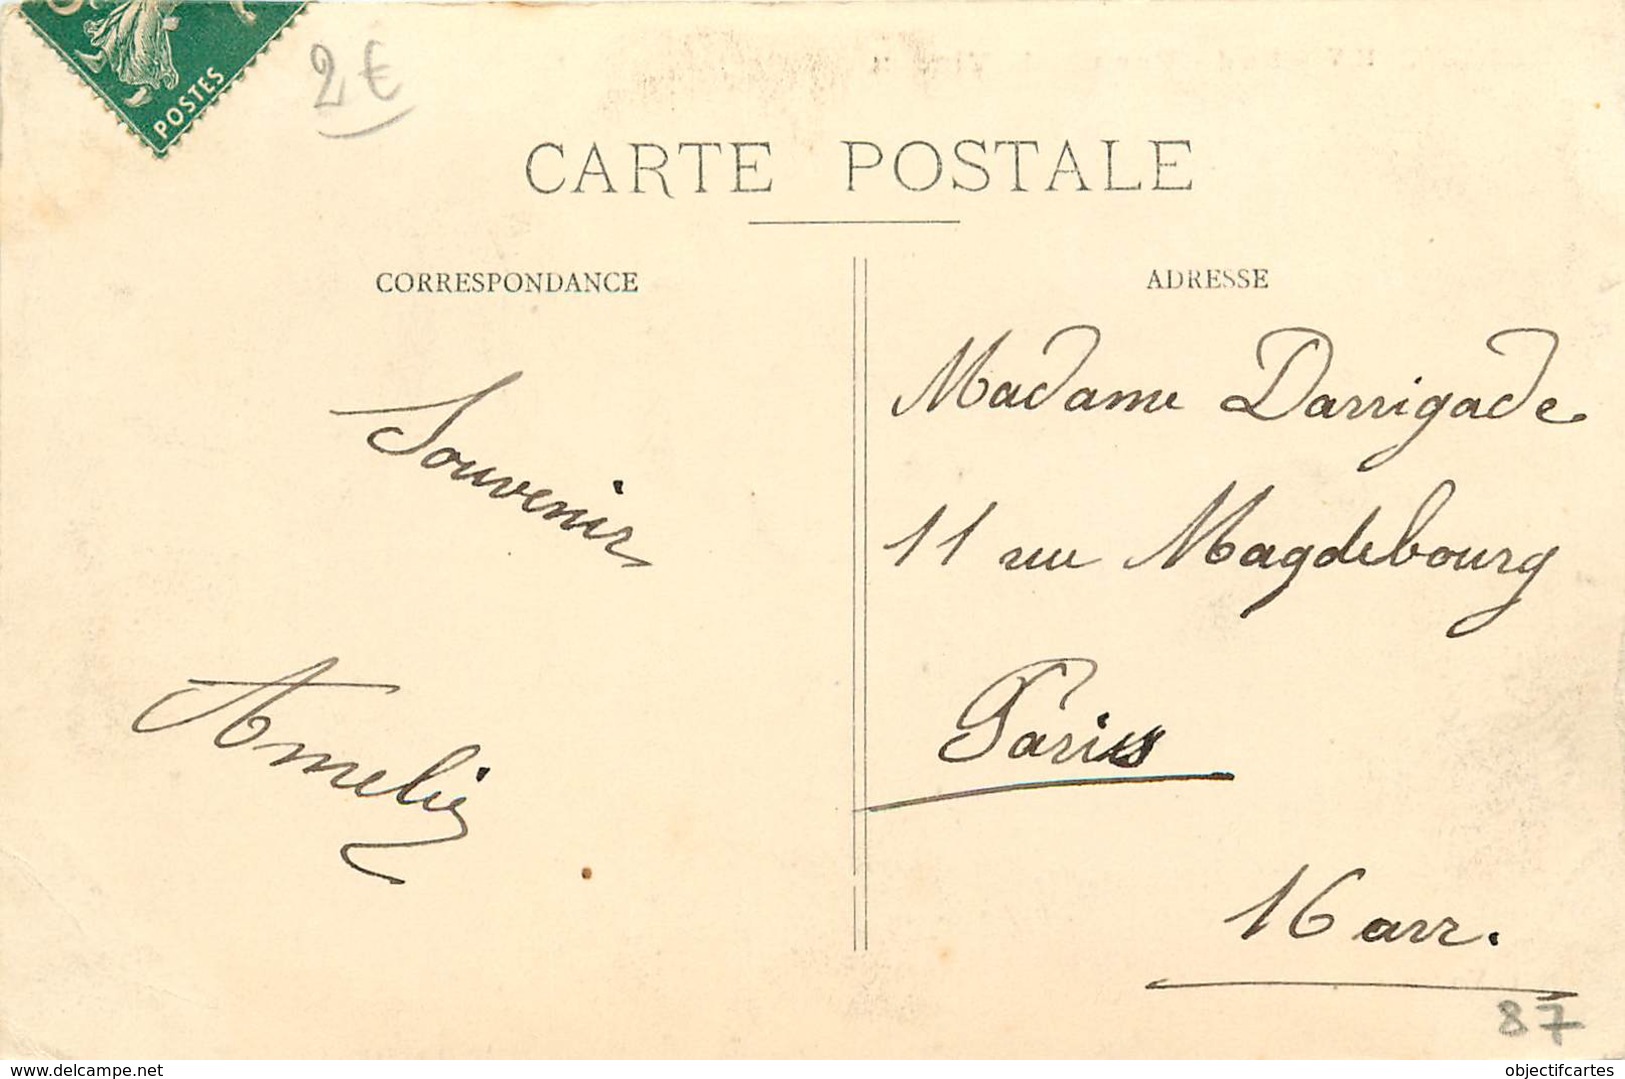 POSTES
2€
CARTE POSTALE
CORRESPONDANCE
ADRESSE
Souvenir
Amelie
Madame Darrigade
11 rue Magdebourg
Paris
16 arr.
87
www.delcampe.net
objectifcartes